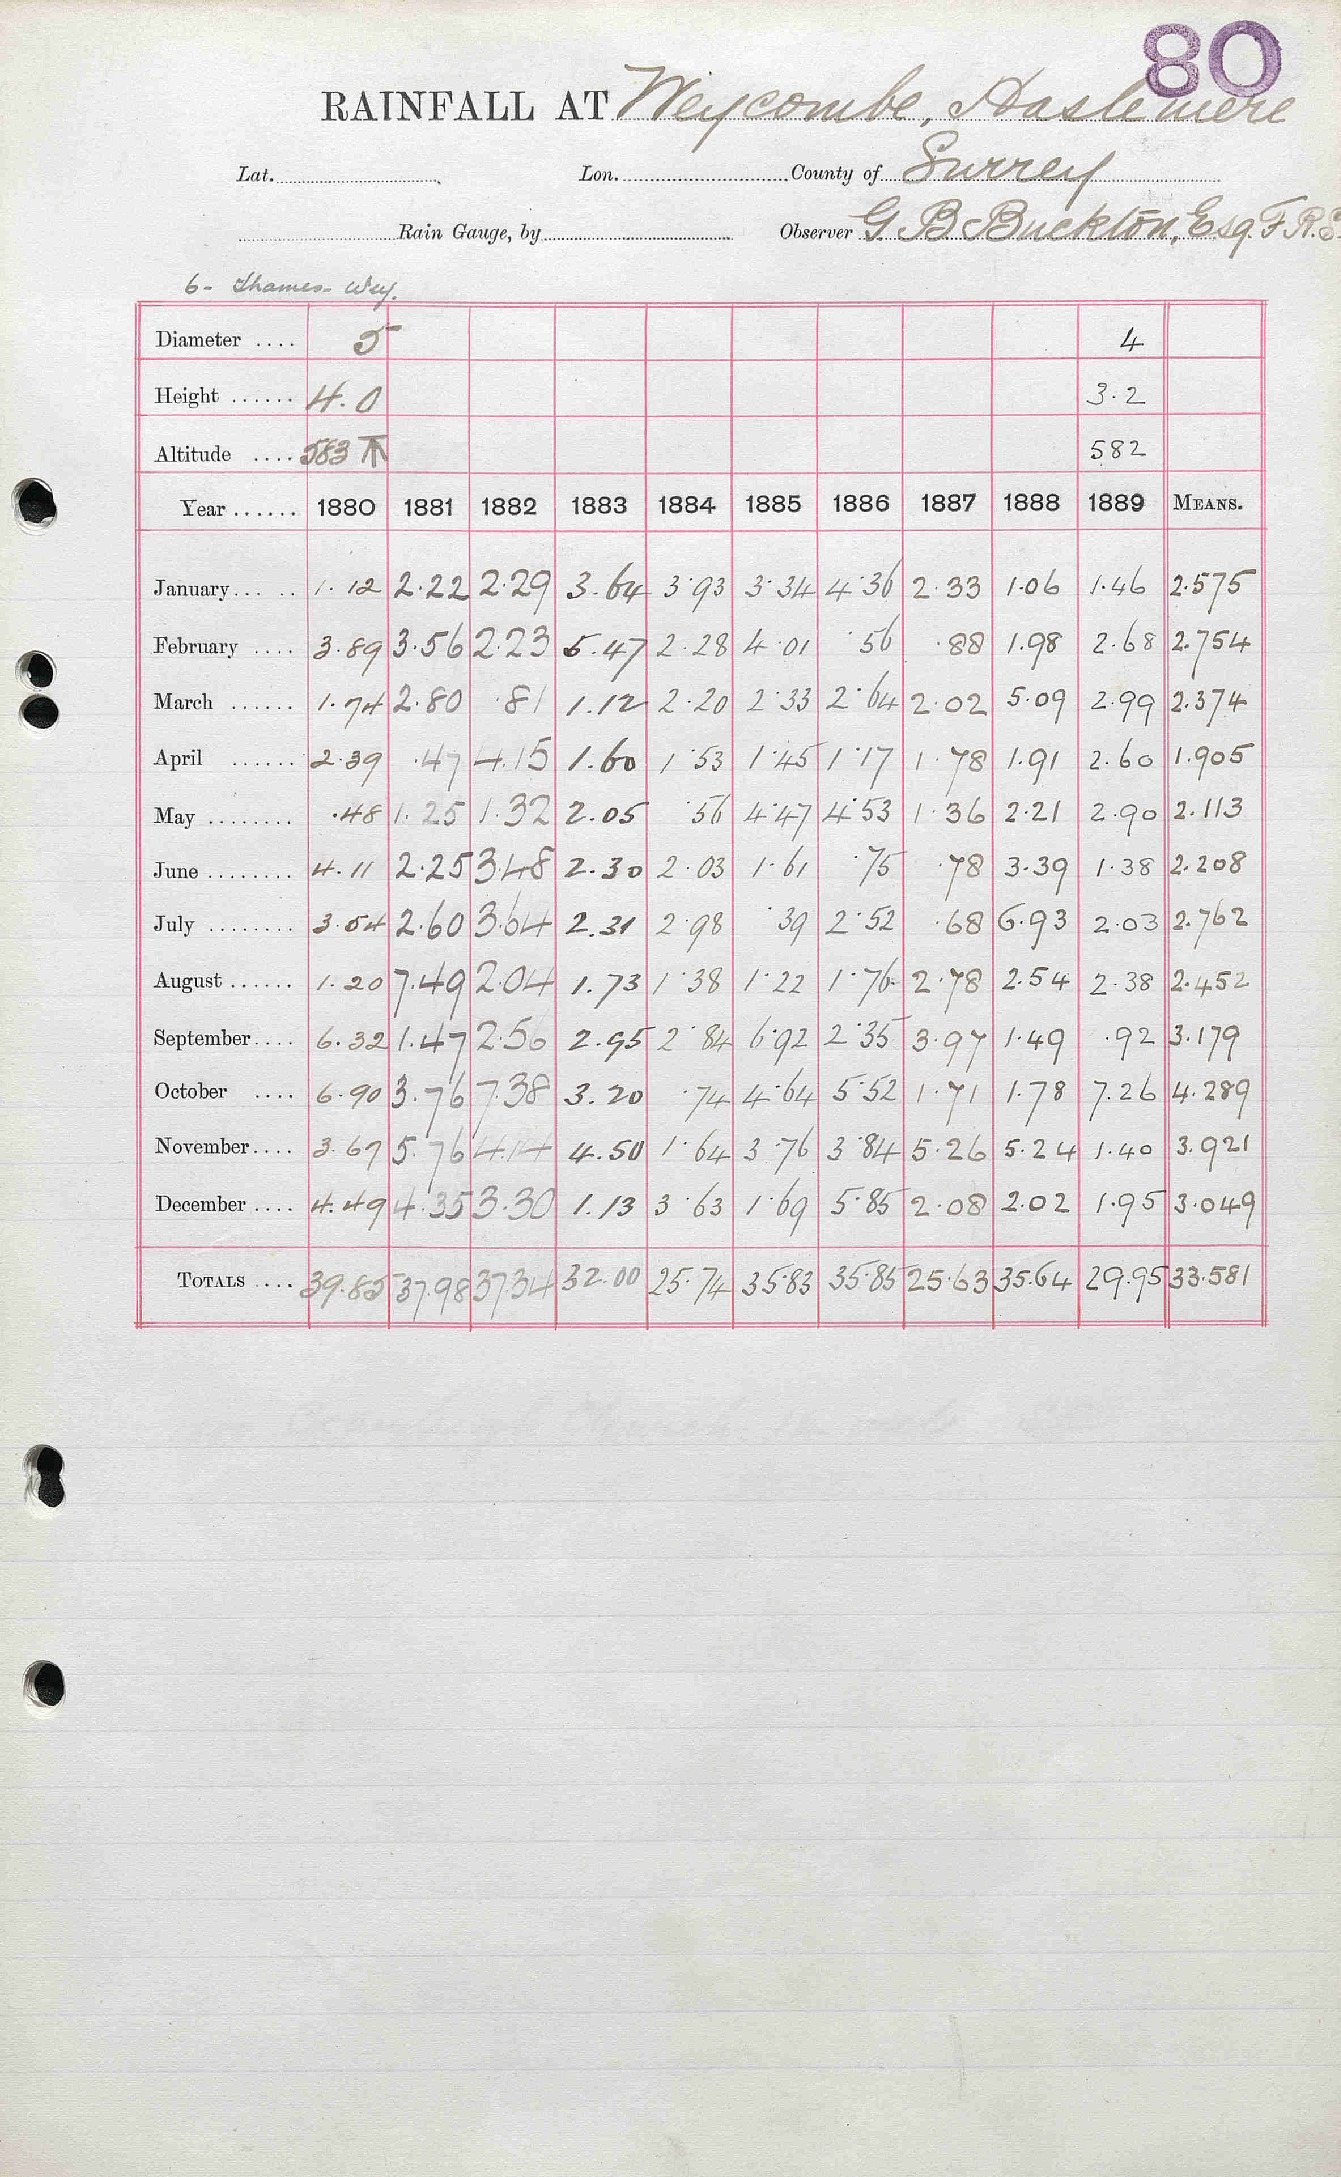 80
RAINFALL AT Weycombe, Haslemere
Lat. Lon. County of Surrey
Rain Gauge, by Observer G. B. Buckton, Esq. F.R.S.
6- Thames- Wey.
Diameter .... 5 4
Height ...... 4.0 3.2
Altitude .... 583 582
Year ...... 1880 1881 1882 1883 1884 1885 1886 1887 1888 1889 MEANS.
January ...... 1.12 2.22 2.29 3.64 3.93 3.34 4.36 2.33 1.06 1.46 2.575
February .... 3.89 3.56 2.23 5.47 2.28 4.01 .56 .88 1.98 2.68 2.754
March ...... 1.74 2.80 .81 1.12 2.20 2.33 2.64 2.02 5.09 2.99 2.374
April ...... 2.39 .47 4.15 1.60 1.53 1.45 1.17 1.78 1.91 2.60 1.905
May ........ .48 1.25 1.32 2.05 .56 4.47 4.53 1.36 2.21 2.90 2.113
June ........ 4.11 2.25 3.48 2.30 2.03 1.61 .75 .78 3.39 1.38 2.208
July ........ 3.54 2.60 3.64 2.31 2.98 .39 2.52 .68 6.93 2.03 2.762
August ...... 1.20 7.49 2.04 1.73 1.38 1.22 1.76 2.78 2.54 2.38 2.452
September .... 6.32 1.47 2.56 2.95 2.84 6.92 2.35 3.97 1.49 .92 3.179
October .... 6.90 3.76 7.38 3.20 .74 4.64 5.52 1.71 1.78 7.26 4.289
November .... 3.67 5.76 4.14 4.50 1.64 3.76 3.84 5.26 5.24 1.40 3.921
December .... 4.49 4.35 3.30 1.13 3.63 1.69 5.85 2.08 2.02 1.95 3.049
TOTALS .... 39.85 37.98 37.34 32.00 25.74 35.83 35.85 25.63 35.64 29.95 33.581